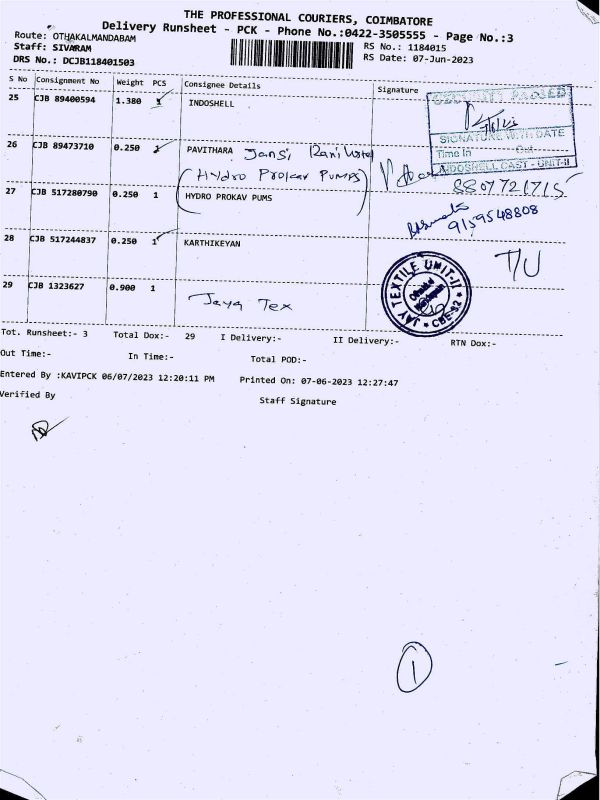 THE PROFESSIONAL COURIERS, COIMBATORE
Delivery Runsheet - PCK - Phone No.:0422-3505555 - Page No.:3
Route: OTHAKALMANDABAM
RS No.: 1184015
Staff: SIVARAM
RS Date: 07-Jun-2023
DRS No.: DCJB118401503
S No Consignment No Weight PCS Consignee Details Signature
25 CJB 89400594 1.380 INDOSHELL
SIGNATURE WITH DATE
Time In Out
INDOSHELL CAST - UNIT-II
26 CJB 89473710 0.250 PAVITHARA Jansi Rani
(Hydro Prokav Pumps)
8807721715
27 CJB 517280790 0.250 1 HYDRO PROKAV PUMS
9159548808
28 CJB 517244837 0.250 1 KARTHIKEYAN
T/U
29 CJB 1323627 0.900 1 Jaya Tex
JAY TEXTILE UNIT-II
CBE-2
Tot. Runsheet:- 3 Total Dox:- 29 I Delivery:- II Delivery:- RTN Dox:-
Out Time:- In Time:- Total POD:-
Entered By :KAVIPCK 06/07/2023 12:20:11 PM Printed On: 07-06-2023 12:27:47
Verified By Staff Signature
1